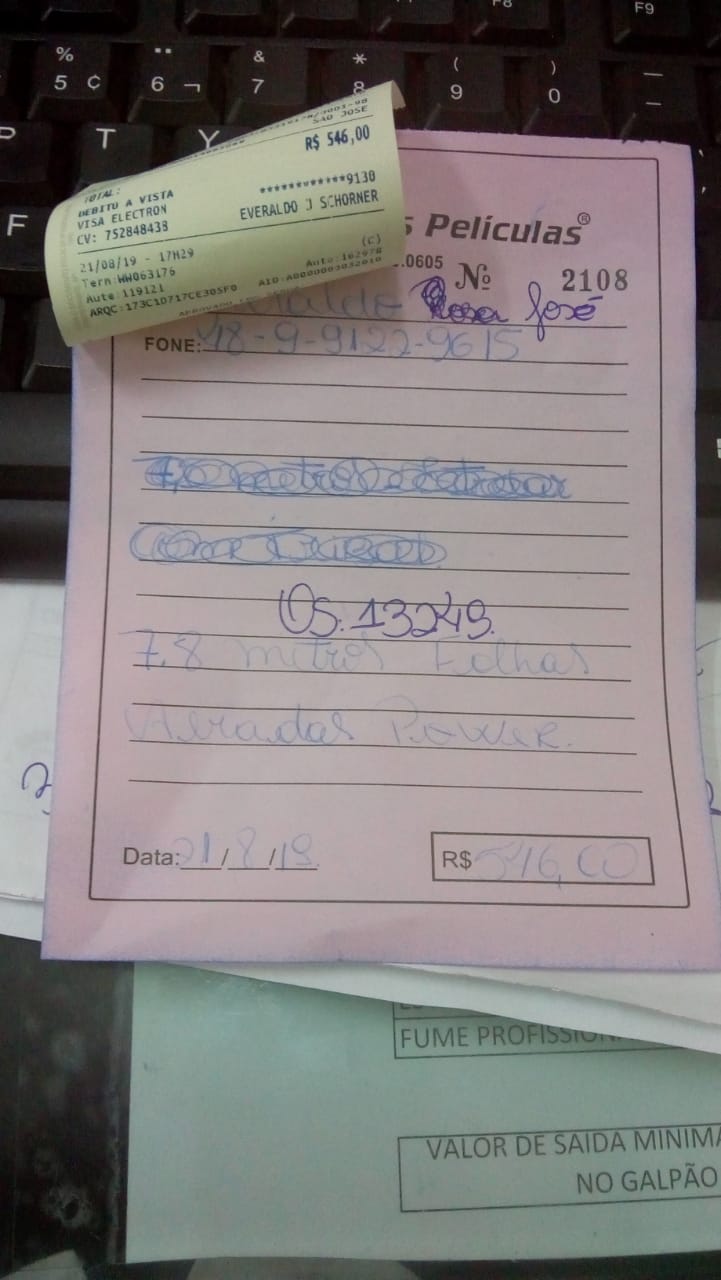 F8
F9
% 5 ¢
6 ¬
& 7
* 8
( 9
) 0
P
T
Y
F
SAO JOSE
R$ 546,00
TOTAL:
DEBITO A VISTA
VISA ELECTRON
************9130
CV: 752848438
EVERALDO J SCHORNER
(C)
21/08/19 - 17H29
Term:WW063176
Auto:162978
Aute:119121
ARQC:173C10717CE305F0
s Películas®
.0605
Nº 2108
José
FONE: 48-9-9122-9615
OS. 13249.
7,8 metros Folhas
Power.
Data: 21/8/19
R$ 546,00
FUME PROFISSION
VALOR DE SAIDA MINIMA
NO GALPÃO